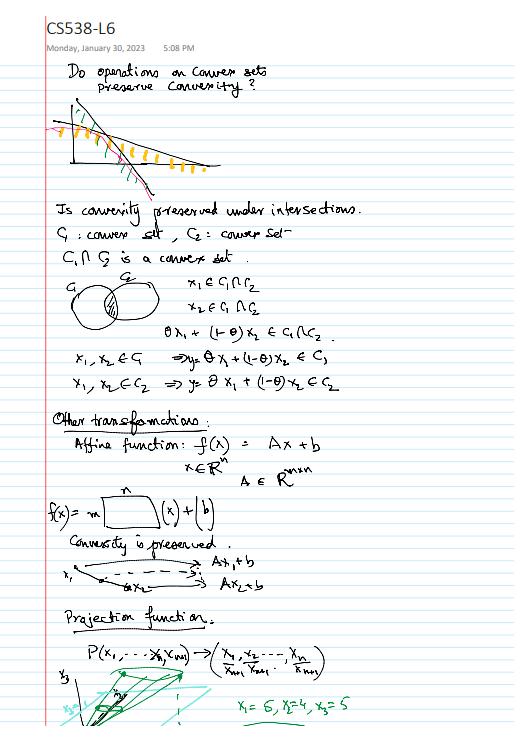 CS538-L6
Monday, January 30, 2023 5:08 PM
Do operations on convex sets
preserve convexity?
Is convexity preserved under intersections.
C₁ : convex set , C₂ : convex set
C₁ ∩ C₂ is a convex set .
C₁ C₂ x₁ ∈ C₁ ∩ C₂
x₂ ∈ C₁ ∩ C₂
θx₁ + (1-θ)x₂ ∈ C₁ ∩ C₂ .
x₁, x₂ ∈ C₁ ⇒ y= θ x₁ + (1-θ)x₂ ∈ C₁
x₁, x₂ ∈ C₂ ⇒ y= θ x₁ + (1-θ) x₂ ∈ C₂
Other transformations :
Affine function: f(x) = Ax + b
x ∈ Rⁿ
A ∈ Rᵐˣⁿ
n
f(x) = m (x) + (b)
Convexity is preserved .
x₁ Ax₁ + b
x₂ Ax₂ + b
Projection function.
P(x₁, ---- xₙ, xₙ₊₁) → (x₁/xₙ₊₁, x₂/xₙ₊₁, ----, xₙ/xₙ₊₁)
x₃
x₁ = 5, x₂ = 4, x₃ = 5